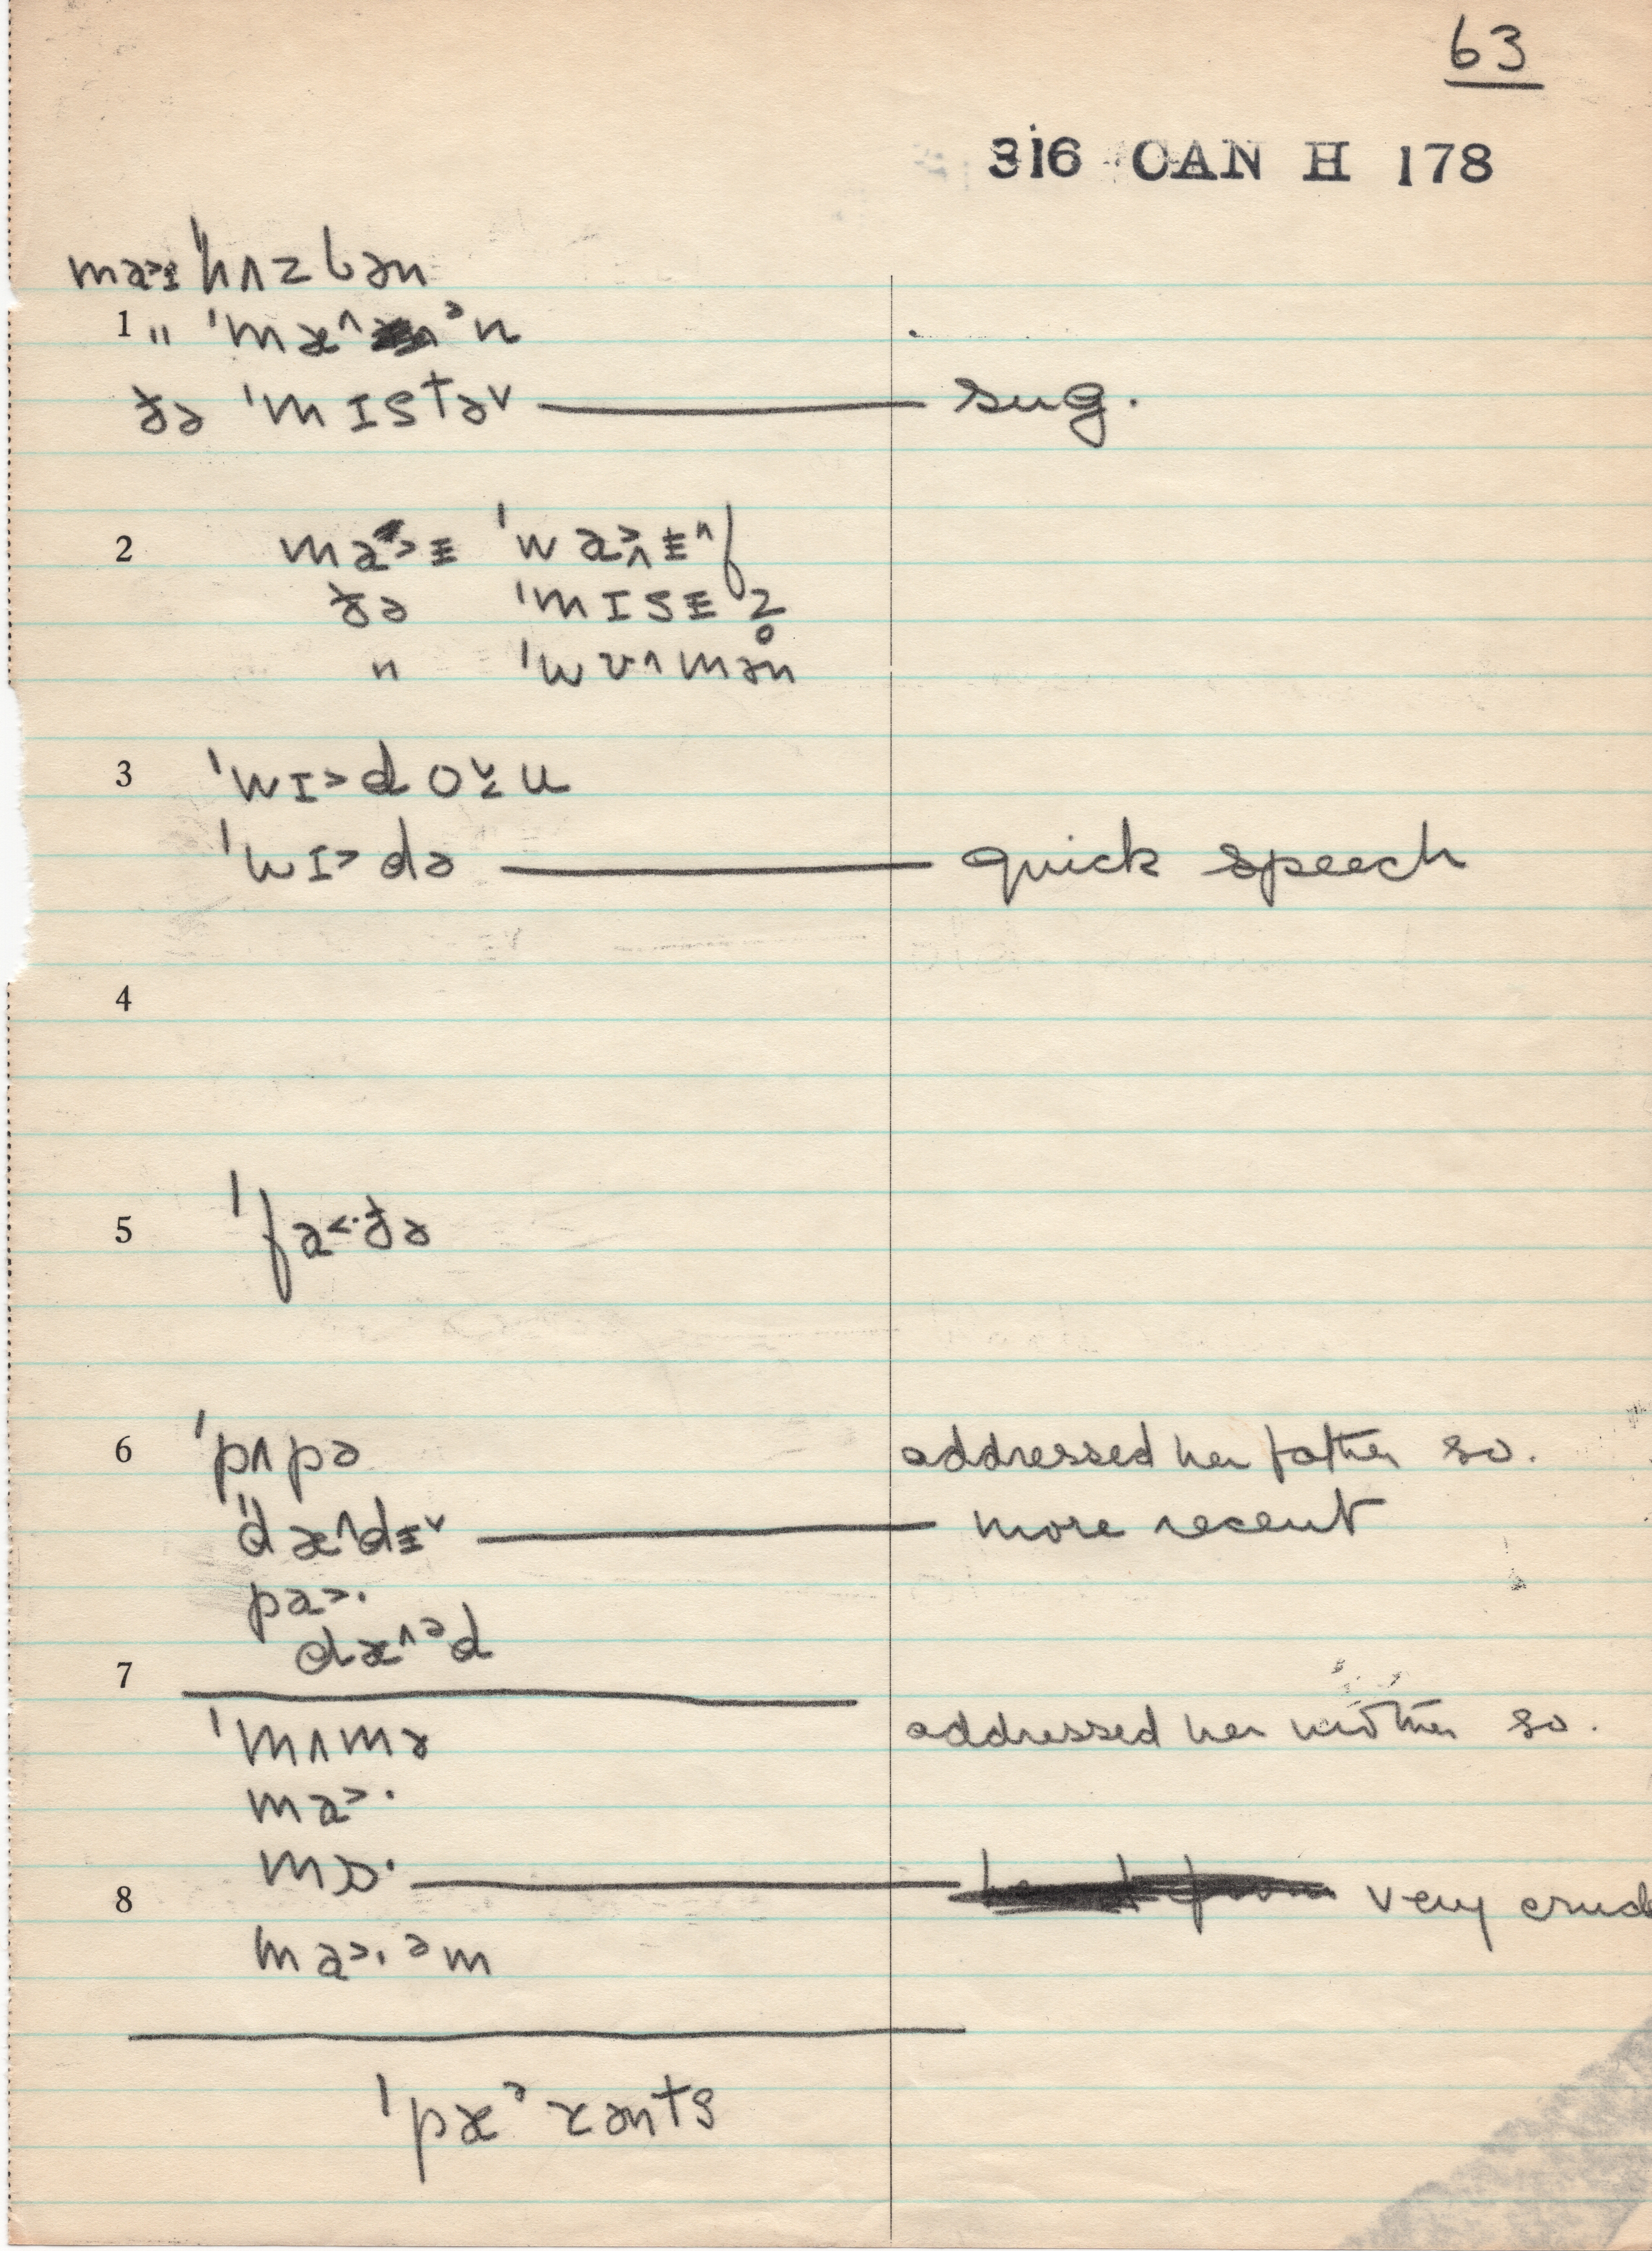 63
316 CAN H 178
ma˃ɪ 'hʌzbən
1 " 'mæ^ ᵊn
ðə 'mɪstə˅ — sug.
2 ma˃ᵻ 'wa˃ᵻ^f
ðə 'mɪsᵻz̥
" 'wʊ^mən
3 'wɪ˃do˅u
'wɪ˃də — quick speech
4
5 'fa˂·ðə
6 'pʌpə addressed her father so.
'dæ^dᵻ˅ — more recent
pa˃·
dæ^ᵊd
7
'mʌmə addressed her mother so.
ma˃·
8 mɒ· — very crud
ma˃·ᵊm
'pæᵊrənts